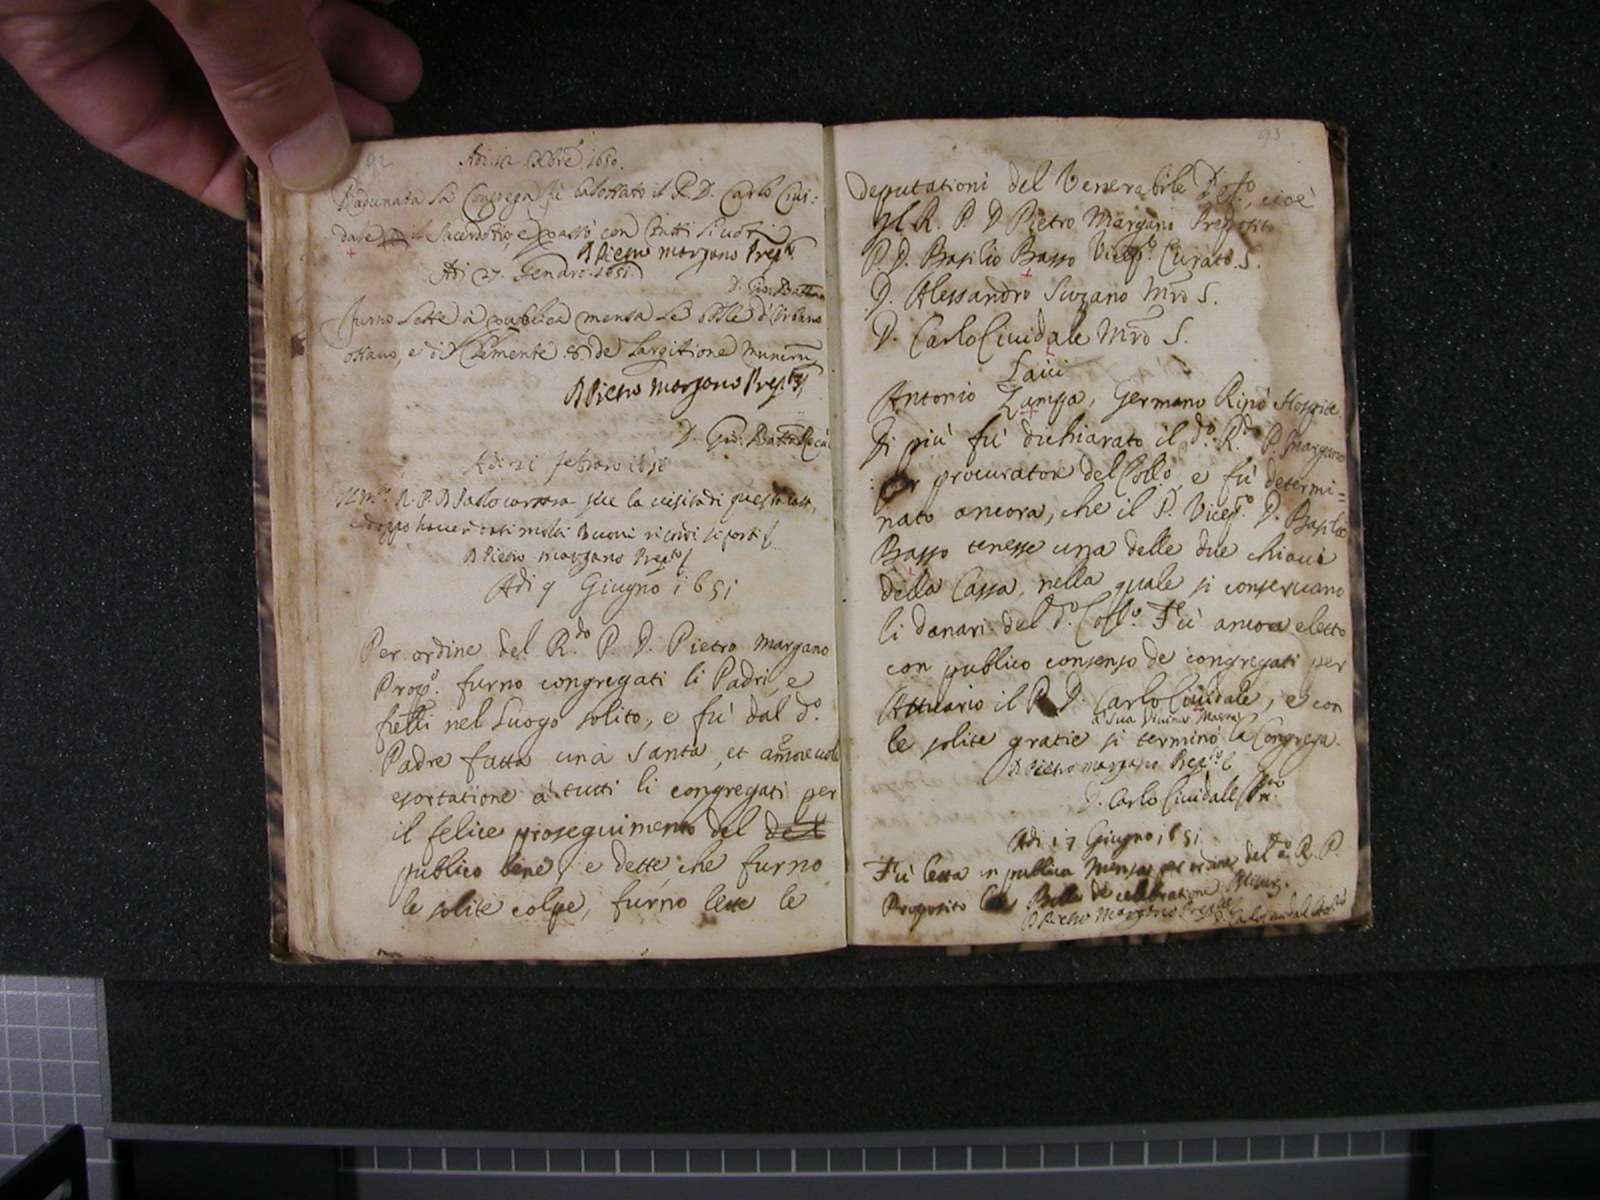 92
Adi 12 Xbre 1650.
Radunata la Congrega fù ballottato il P. D. Carlo Ciui:
dale il Sacerdotio, e passò con tutti li uoti
D Pietro Margano Prepto
Adi 27 Gennaro 1651.
D. Gio: Batta
furno lette à publica mensa le bolle d'Urbano
ottauo, e di Clemente 8. de largitione munerum
D Pietro Margano Prepto
D. Gio: Batta
Adi 21 febraro 1651
R. P. D. Paolo Carrara fece la uisita di questa casa,
e doppo hauer dati molti buoni ricordi si partì
D Pietro Margano Prepto
Adi 9 Giugno 1651
Per ordine del R.do P. D. Pietro Margano
Propo. furno congregati li Padri, e
fratelli nel luogo solito, e fù dal do.
Padre fatta una santa, et amoreuole
esortatione à tutti li congregati per
il felice proseguimento del del
publico bene, e dette che furno
le solite colpe, furno lette le
93
deputationi del Venerabile Deffo., cioè
Il R. P. D Pietro Margano Preposito
P. D. Basilio Basso Vicepo. Curato. S.
D. Alessandro Mro S.
D. Carlo Ciuidale Mro S.
Laici
Antonio Zampa, Germano Ripò Hospite.
Di più fù dichiarato il do. Rdo. P. Margano
per procuratore del Collo, e fù determi=
nato ancora, che il P. Vicepo. D. Basilio
Basso tenesse una delle due chiaui
della Cassa, nella quale si conseruano
li danari del do. Collo. Fù ancora eletto
con publico consenso de congregati per
Attuario il P. D. Carlo Ciuidale, e con
le solite gratie a Sua Diuina Maestà si terminò la Congrega.
D. Pietro Margano Prepto
D. Carlo Ciuidale Attrio
Adi 17 Giugno 1651
Fù letta in publica Mensa per ordine del do. R. P.
Preposito la Bolla de celebratione Missar.
D Pietro Margano Prepto
D. Carlo Ciuidal Attrio